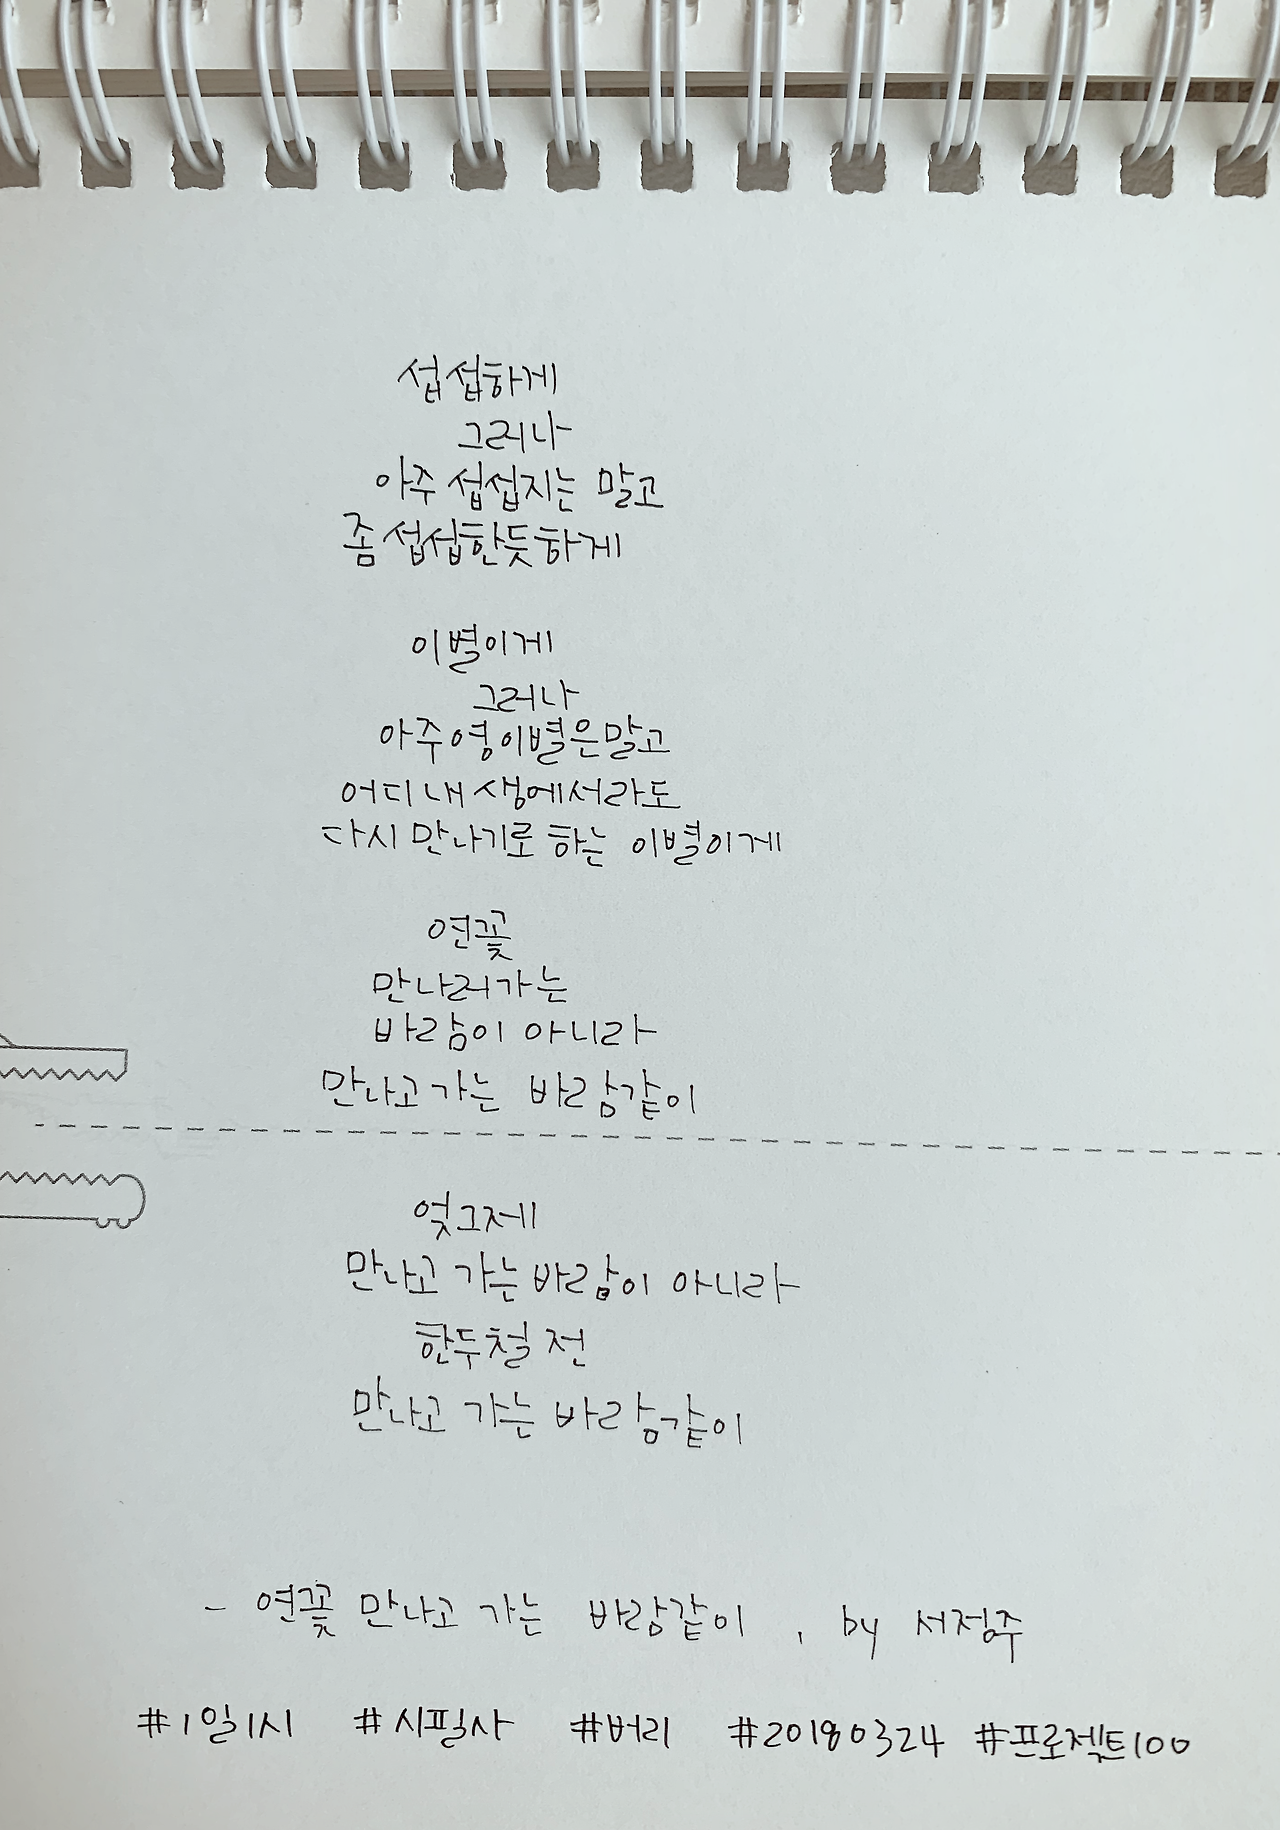 섭섭하게
그러나
아주 섭섭지는 말고
좀 섭섭한듯하게
이별이게
그러나
아주 영이별은말고
어디 내 생에서라도
다시 만나기로 하는 이별이게
연꽃
만나러가는
바람이 아니라
만나고 가는 바람같이
엊그제
만나고 가는 바람이 아니라
한두철 전
만나고 가는 바람같이
- 연꽃 만나고 가는 바람같이, by 서정주
#1일1시 #시필사 #버리 #20180324 #프로젝트100